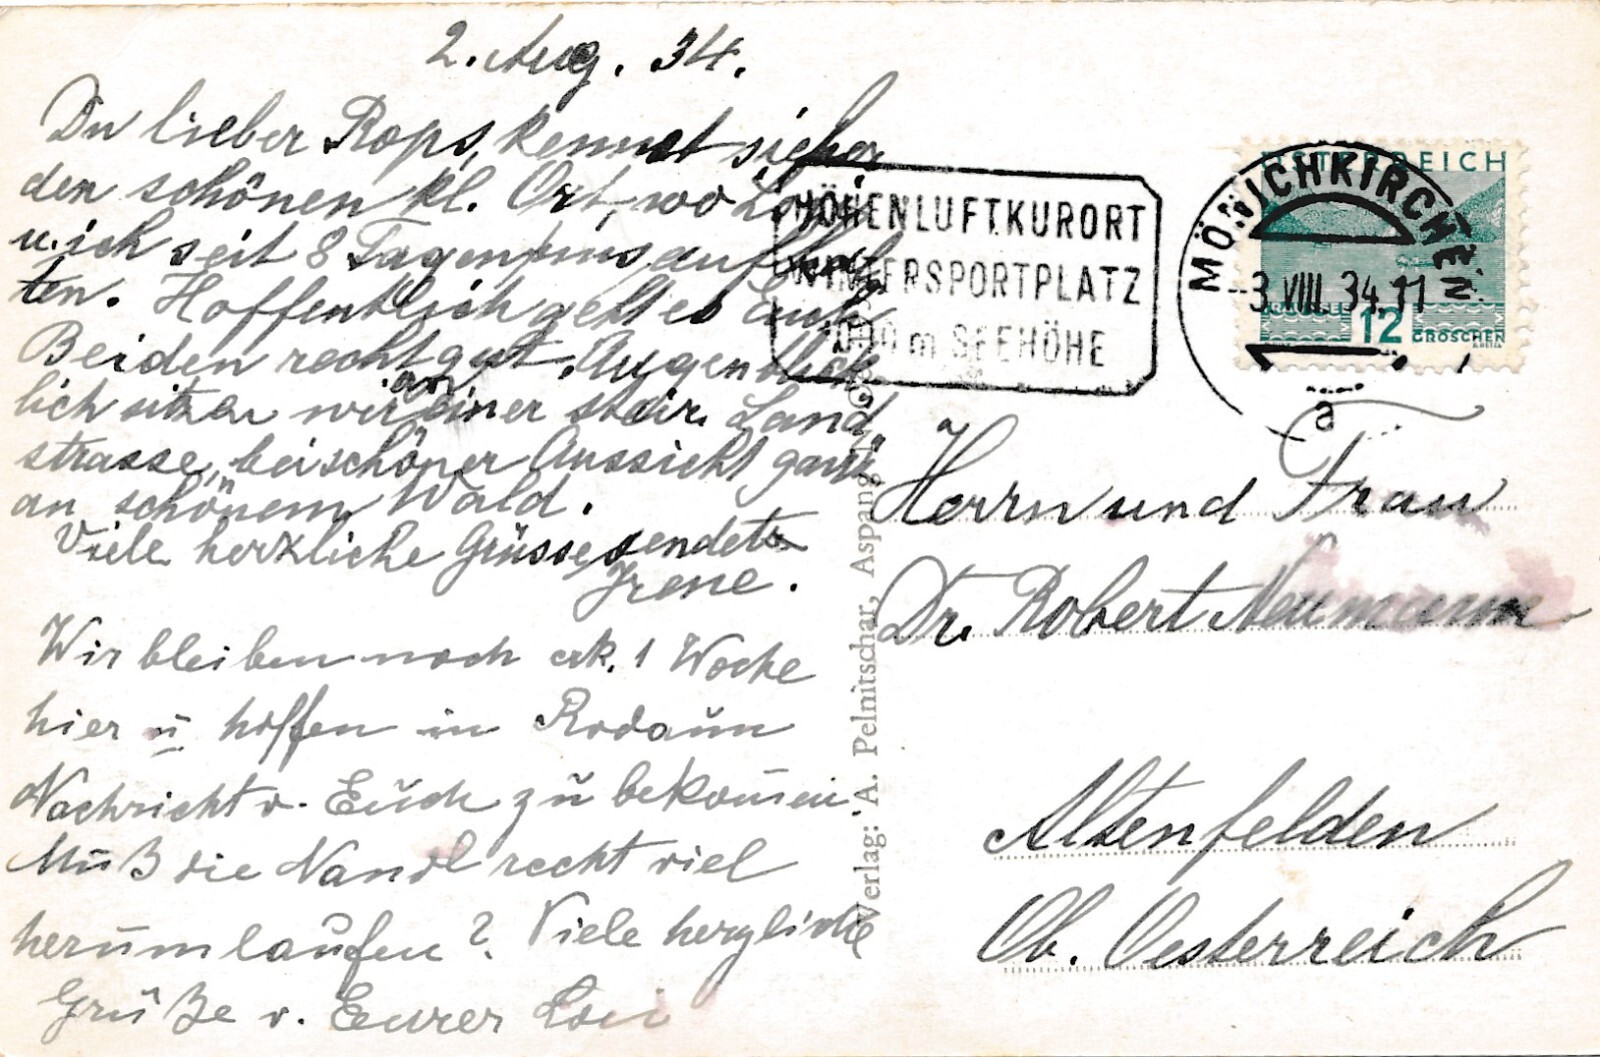 2. Aug. 34.
Du lieber Rops, kennst sicher
den schönen kl. Ort, wo Loisl
u. ich seit 8 Tagen uns aufhal
ten. Hoffentlich geht es Euch
Beiden recht gut. Augenblick
lich sitzen wir an einer steir. Land
strasse, bei schöner Aussicht ganz
an schönem Wald.
Viele herzliche Grüsse sendet
Irene.
Wir bleiben noch zirk. 1 Woche
hier u hoffen in Rodaun
Nachricht v. Euch zu bekom̅en
Muß die Nandl recht viel
herumlaufen? Viele herzliche
Grüße v. Eurer Loisi
Verlag: A. Pelnitschar, Aspang
HÖHENLUFTKURORT
WINTERSPORTPLATZ
1000 m SEEHÖHE
MÖNICHKIRCHEN
-3.VIII.34.11
a
ÖSTERREICH
12 GROSCHEN
Herrn und Frau
Dr. Robert Neumann
Altenfelden
Ob. Oesterreich